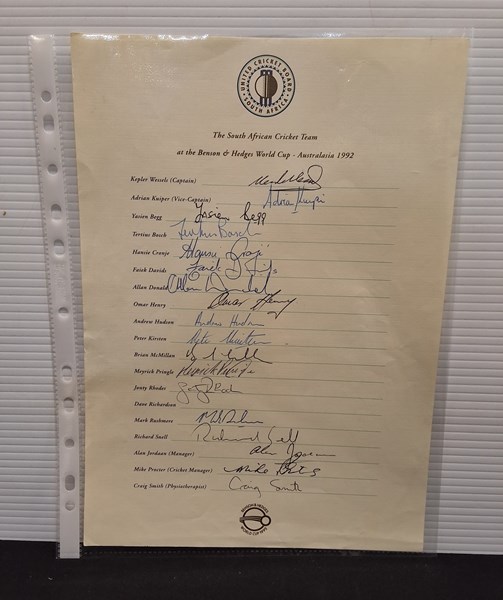 UNITED CRICKET BOARD
SOUTH AFRICA
The South African Cricket Team
at the Benson & Hedges World Cup - Australasia 1992
Kepler Wessels (Captain)
Adrian Kuiper (Vice-Captain) Adrian Kuiper
Yasien Begg Yasien Begg
Tertius Bosch Tertius Bosch
Hansie Cronje
Faiek Davids
Allan Donald Allan Donald
Omar Henry Omar Henry
Andrew Hudson Andrew Hudson
Peter Kirsten
Brian McMillan
Meyrick Pringle Meyrick Pringle
Jonty Rhodes
Dave Richardson
Mark Rushmere
Richard Snell Richard Snell
Alan Jordaan (Manager) Alan Jordaan
Mike Procter (Cricket Manager) Mike
Craig Smith (Physiotherapist) Craig Smith
BENSON & HEDGES
WORLD CUP 1992